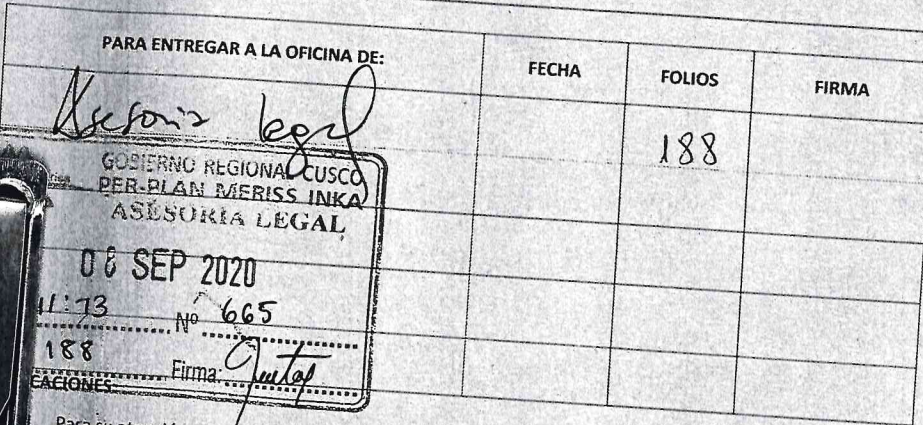 PARA ENTREGAR A LA OFICINA DE: FECHA FOLIOS FIRMA
Asesoria legal 188
GOBIERNO REGIONAL CUSCO
PER-PLAN MERISS INKA
ASESORIA LEGAL
SEP 2020
11:13 Nº 665
188 Firma:
CACIONES:
Para su